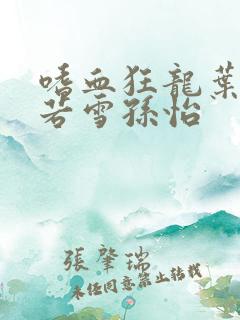 嗜血狂龍葉
若雪孫怡
張肇瑞
未经同意禁止转载